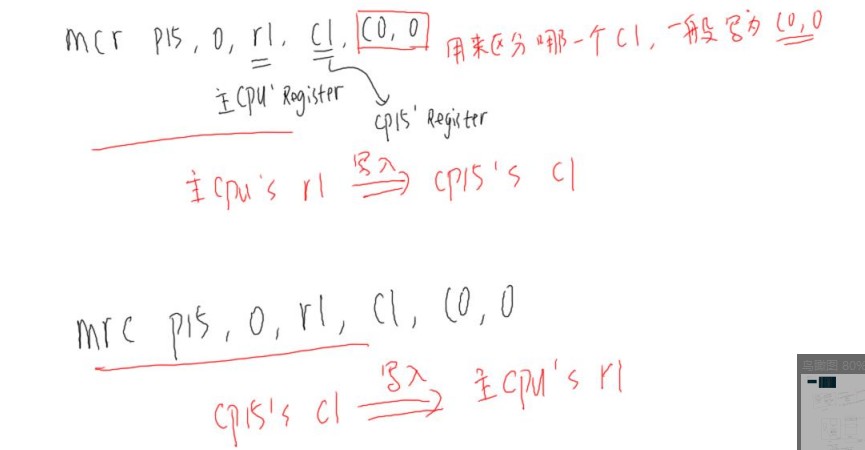 mcr p15, 0, r1, c1, c0, 0 用来区分哪一个c1, 一般写为 c0,0
主cpu' Register
cp15' Register
主cpu's r1 写入 cp15's c1
mrc p15, 0, r1, c1, c0, 0
cp15's c1 写入 主cpu's r1
鸟瞰图 80%